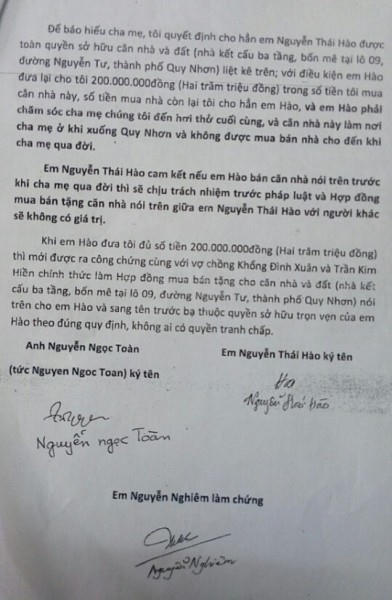 Để báo hiếu cha mẹ, tôi quyết định cho hẳn em Nguyễn Thái Hào được
toàn quyền sở hữu căn nhà và đất (nhà kết cấu ba tầng, bốn mê tại lô 09,
đường Nguyễn Tư, thành phố Quy Nhơn) liệt kê trên; với điều kiện em Hào
đưa lại cho tôi 200.000.000đồng (Hai trăm triệu đồng) trong số tiền tôi mua
căn nhà này, số tiền mua nhà còn lại tôi cho hẳn em Hào, và em Hào phải
chăm sóc cha mẹ chúng tôi đến hơi thở cuối cùng, và căn nhà này làm nơi
cha mẹ ở khi xuống Quy Nhơn và không được mua bán nhà cho đến khi
cha mẹ qua đời.
Em Nguyễn Thái Hào cam kết nếu em Hào bán căn nhà nói trên trước
khi cha mẹ qua đời thì sẽ chịu trách nhiệm trước pháp luật và Hợp đồng
mua bán tặng căn nhà nói trên giữa em Nguyễn Thái Hào với người khác
sẽ không có giá trị.
Khi em Hào đưa tôi đủ số tiền 200.000.000đồng (Hai trăm triệu đồng)
thì mới được ra công chứng cùng với vợ chồng Khổng Đình Xuân và Trần Kim
Hiền chính thức làm Hợp đồng mua bán tặng cho căn nhà và đất (nhà kết
cấu ba tầng, bốn mê tại lô 09, đường Nguyễn Tư, thành phố Quy Nhơn) nói
trên cho em Hào và sang tên trước bạ thuộc quyền sở hữu trọn vẹn của em
Hào theo đúng quy định, không ai có quyền tranh chấp.
Anh Nguyễn Ngọc Toàn Em Nguyễn Thái Hào ký tên
(tức Nguyen Ngoc Toan) ký tên
Nguyễn Thái Hào
Nguyễn ngọc Toàn
Em Nguyễn Nghiêm làm chứng
Nguyễn Nghiêm